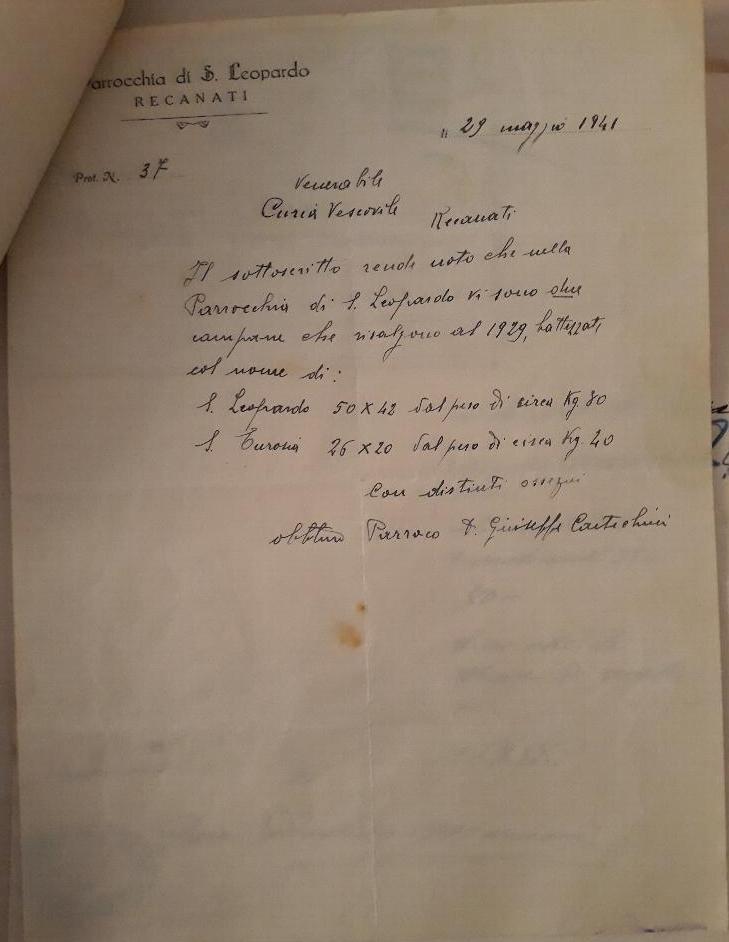 Parrocchia di S. Leopardo
RECANATI
li 29 maggio 1941
Prot. N. 37
Venerabile
Curia Vescovile Recanati
Il sottoscritto rende noto che nella
Parrocchia di S. Leopardo vi sono due
campane che risalgono al 1929, battezzati
col nome di:
S. Leopardo 50 x 42 dal peso di circa Kg 80
S. Eurosia 26 x 20 dal peso di circa Kg. 40
Con distinti ossequi
Parroco D. Giuseppe